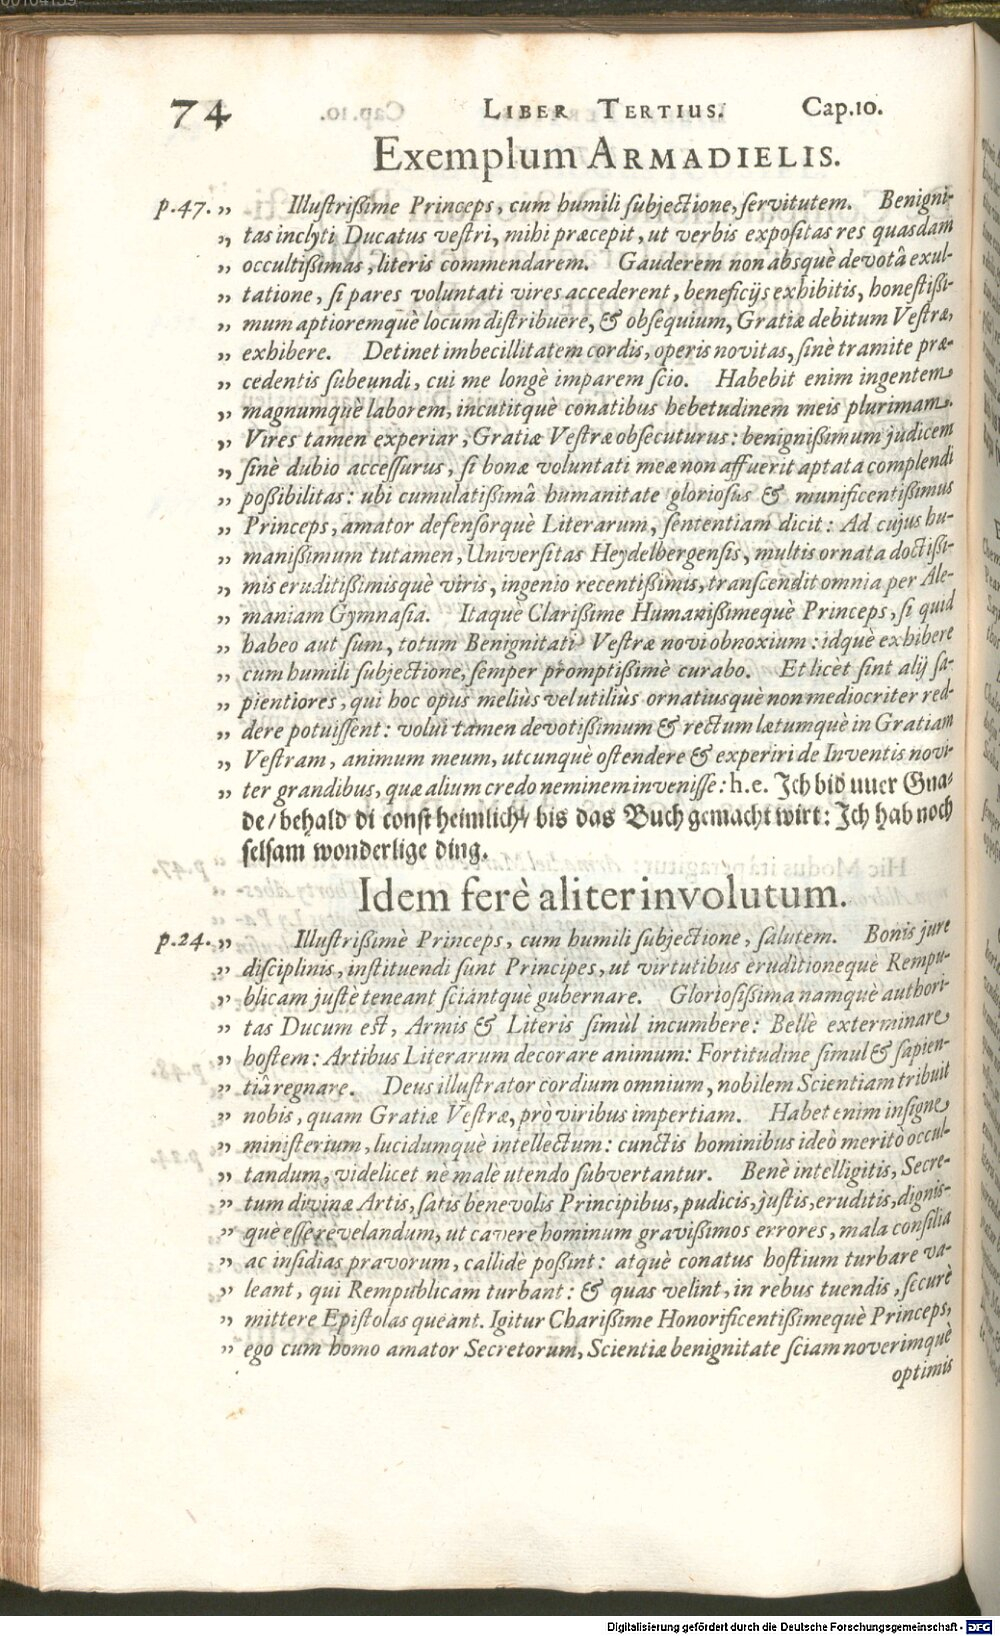 74 LIBER TERTIUS. Cap.10.
Exemplum ARMADIELIS.
p.47. „ Illuſtriſſime Princeps, cum humili ſubjectione, ſervitutem. Benigni-
„ tas inclyti Ducatus veſtri, mihi præcepit, ut verbis expoſitas res quasdam
„ occultiſſimas, literis commendarem. Gauderem non absquè devotâ exul-
„ tatione, ſi pares voluntati vires accederent, beneficijs exhibitis, honeſtiſſi-
„ mum aptioremquè locum diſtribuere, & obſequium, Gratiæ debitum Veſtræ,
„ exhibere. Detinet imbecillitatem cordis, operis novitas, ſinè tramite præ-
„ cedentis ſubeundi, cui me longè imparem ſcio. Habebit enim ingentem
„ magnumquè laborem, incutitquè conatibus hebetudinem meis plurimam.
„ Vires tamen experiar, Gratiæ Veſtræ obſecuturus: benigniſſimum judicem
„ ſinè dubio acceſſurus, ſi bonæ voluntati meæ non affuerit aptata complendi
„ poſſibilitas: ubi cumulatiſſimâ humanitate glorioſus & munificentiſſimus
„ Princeps, amator defenſorquè Literarum, ſententiam dicit: Ad cujus hu-
„ maniſſimum tutamen, Univerſitas Heydelbergenſis, multis ornata doctiſſi-
„ mis eruditiſſimisquè viris, ingenio recentiſſimis, tranſcendit omnia per Ale-
„ maniam Gymnaſia. Itaquè Clariſſime Humaniſſimequè Princeps, ſi quid
„ habeo aut ſum, totum Benignitati Veſtræ novi obnoxium: idquè exhibere
„ cum humili ſubjectione, ſemper promptiſſimè curabo. Et licèt ſint alij ſa-
„ pientiores, qui hoc opus meliùs vel utiliùs ornatiusquè non mediocriter red-
„ dere potuiſſent: volui tamen devotiſſimum & rectum lætumquè in Gratiam
„ Veſtram, animum meum, utcunquè oſtendere & experiri de Inventis novi-
„ ter grandibus, quæ alium credo neminem inveniſſe: h.e. Ich bid uuer Gna-
de/ behald di conſt heimlich/ bis das Buch gemacht wirt: Ich hab noch
ſelſam wonderlige ding.
Idem ferè aliter involutum.
p.24. „ Illuſtriſſimè Princeps, cum humili ſubjectione, ſalutem. Bonis jure
„ diſciplinis, inſtituendi ſunt Principes, ut virtutibus eruditionequè Rempu-
„ blicam juſtè teneant ſciantquè gubernare. Glorioſiſſima namquè authori-
„ tas Ducum eſt, Armis & Literis ſimùl incumbere: Bellè exterminare
„ hoſtem: Artibus Literarum decorare animum: Fortitudine ſimul & ſapien-
„ tiâ regnare. Deus illuſtrator cordium omnium, nobilem Scientiam tribuit
„ nobis, quam Gratiæ Veſtræ, prò viribus impertiam. Habet enim inſigne
„ miniſterium, lucidumquè intellectum: cunctis hominibus ideò meritò occul-
„ tandum, videlicet nè malè utendo ſubvertantur. Benè intelligitis, Secre-
„ tum divinæ Artis, ſatis benevolis Principibus, pudicis, juſtis, eruditis, dignis-
„ què eſſe revelandum, ut cavere hominum graviſſimos errores, mala conſilia
„ ac inſidias pravorum, callidè poſſint: atquè conatus hoſtium turbare va-
„ leant, qui Rempublicam turbant: & quas velint, in rebus tuendis, ſecurè
„ mittere Epiſtolas queant. Igitur Chariſſime Honorificentiſſimequè Princeps,
„ ego cum homo amator Secretorum, Scientiæ benignitate ſciam noverimquè
optimis
Digitalisierung gefördert durch die Deutsche Forschungsgemeinschaft - DFG